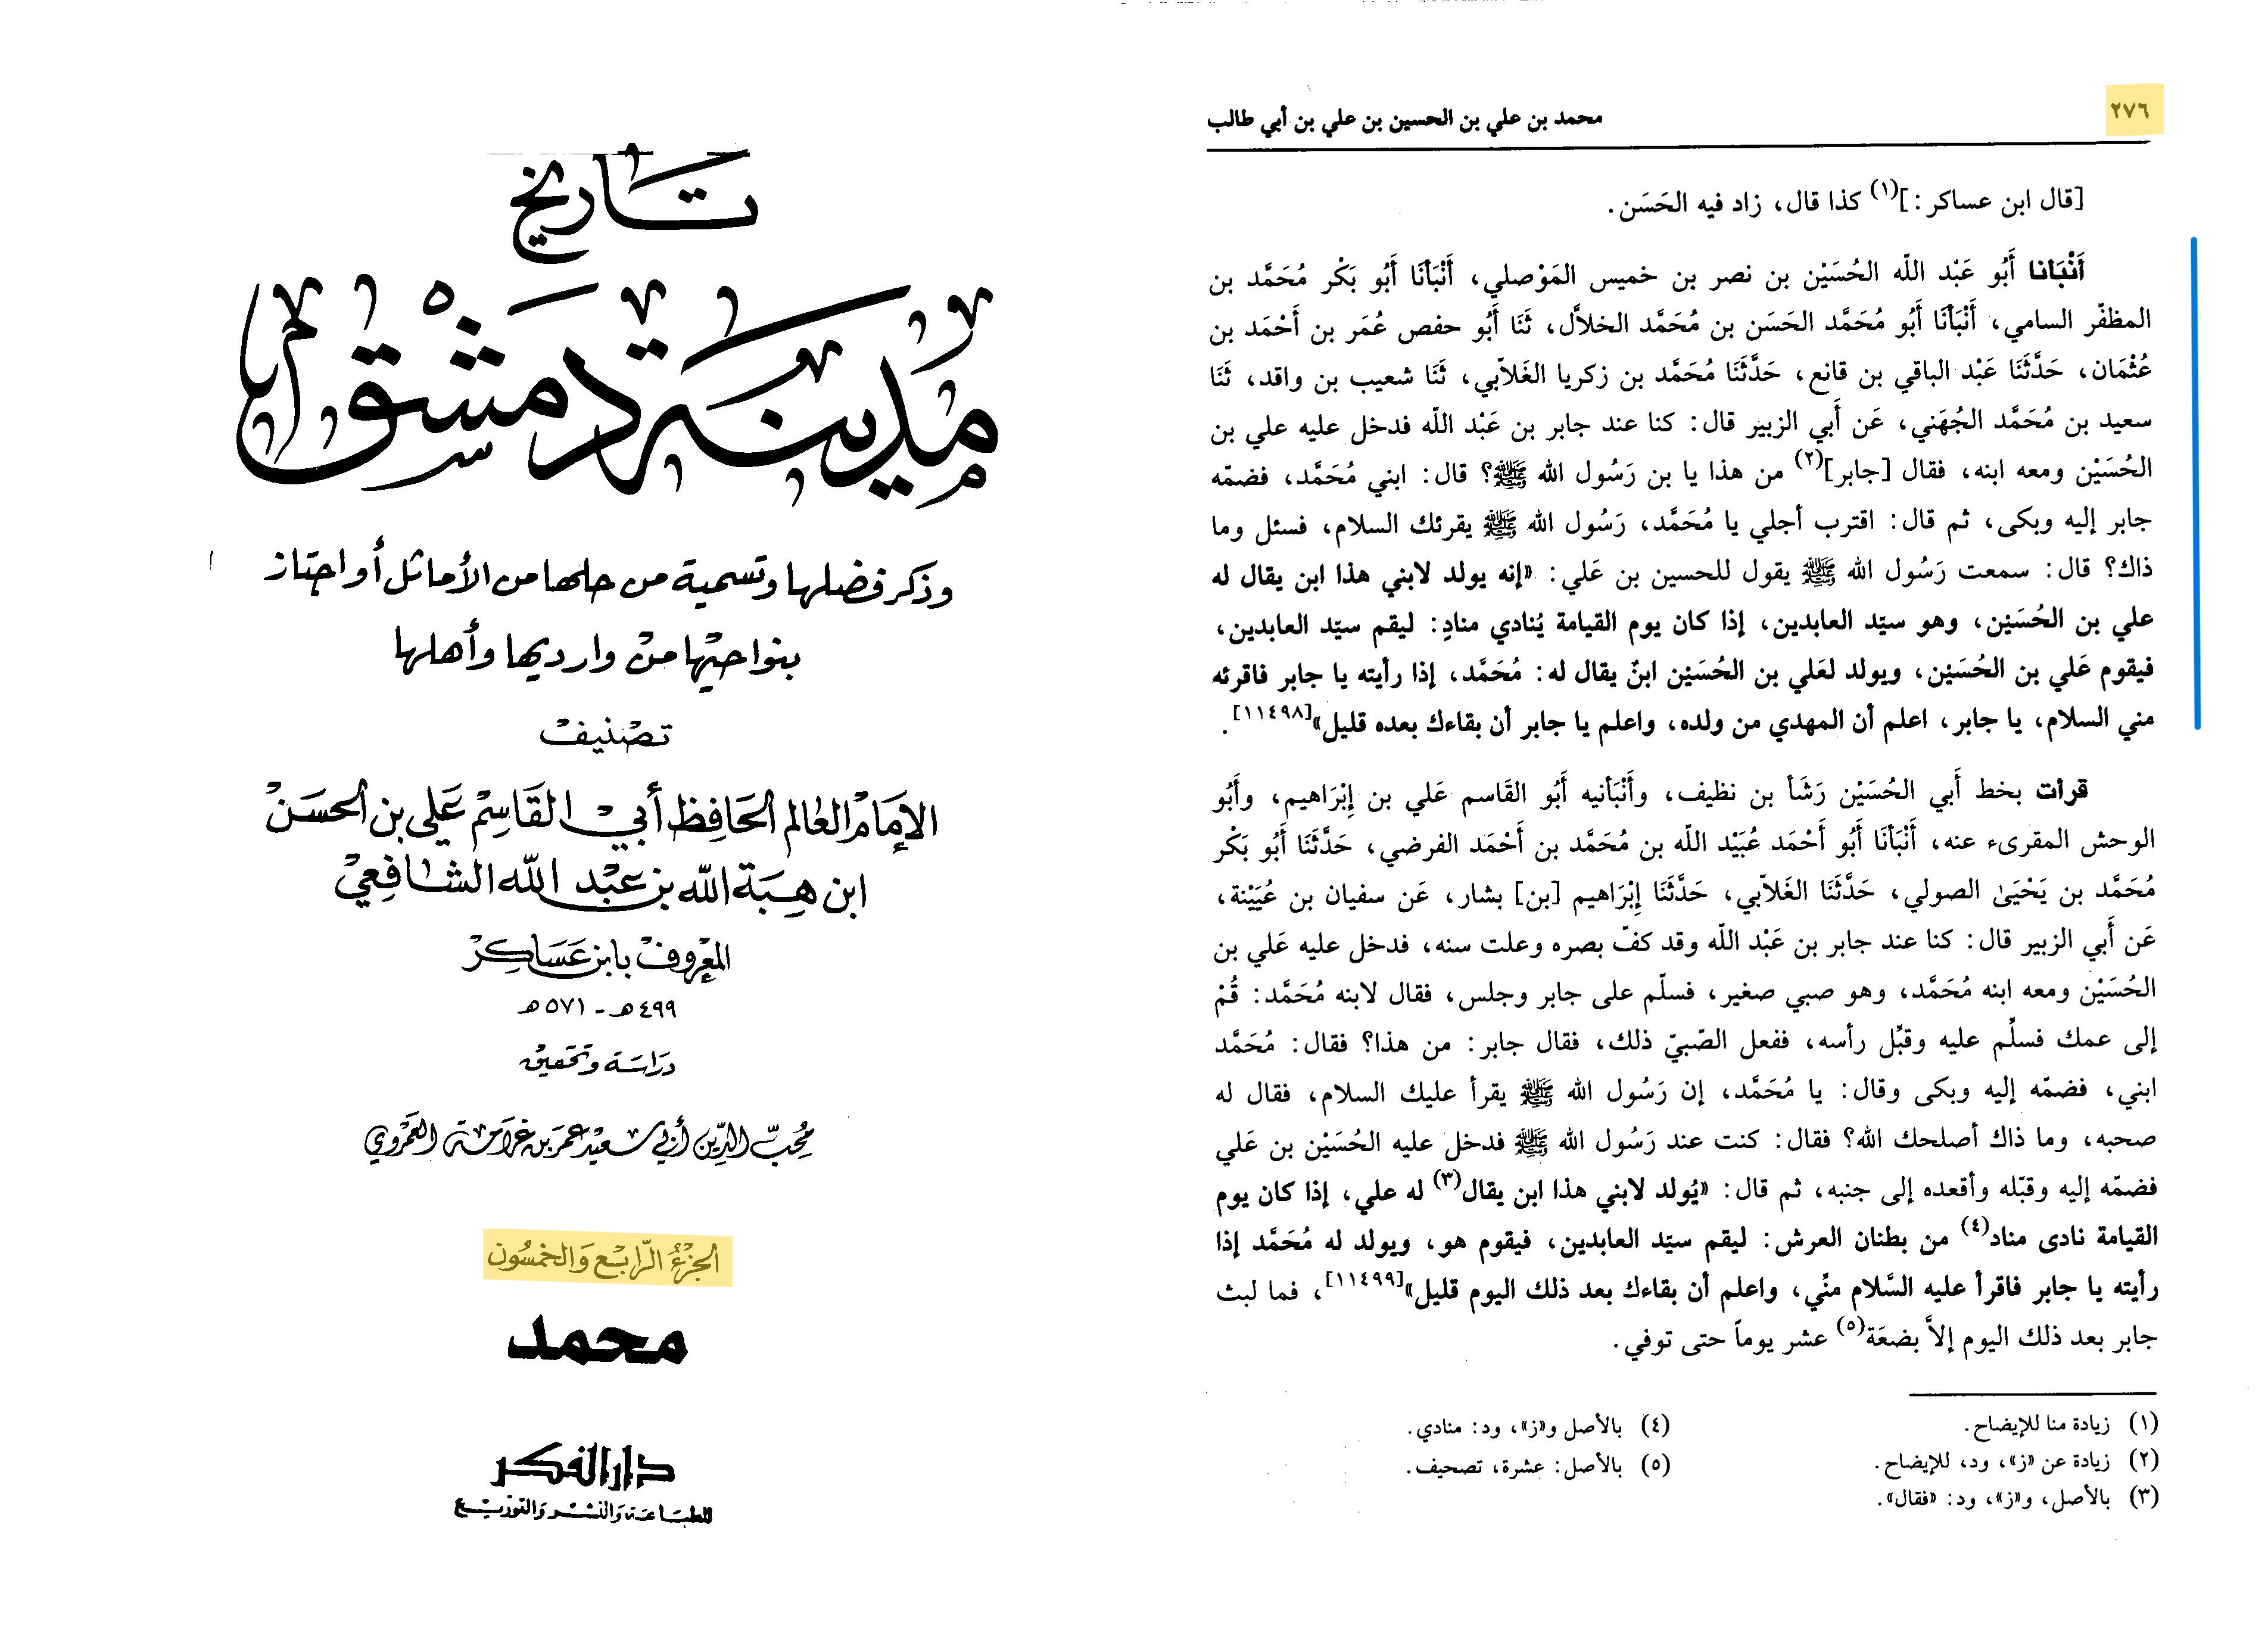 تاريخ
مدينة دمشق
وذكر فضلها وتسمية من حلها من الأماثل أو اجتاز
بنواحيها من وارديها وأهلها
تصنيف
الإمام العالم الحافظ أبي القاسم علي بن الحسن
ابن هبة الله بن عبد الله الشافعي
المعروف بابن عساكر
٤٩٩ هـ - ٥٧١ هـ
دراسة وتحقيق
محب الدين أبي سعيد عمر بن غرامة العمروي
الجزء الرابع والخمسون
محمد
دار الفكر
للطباعة والنشر والتوزيع
٢٧٦
محمد بن علي بن الحسين بن علي بن أبي طالب
[قال ابن عساكر:](١) كذا قال، زاد فيه الحَسَن.
أَنْبَأنا أَبُو عَبْد اللّه الحُسَيْن بن نصر بن خميس المَوْصلي، أَنْبَأنَا أَبُو بَكْر مُحَمَّد بن
المظفّر السامي، أَنْبَأنَا أَبُو مُحَمَّد الحَسَن بن مُحَمَّد الخلاَّل، ثَنَا أَبُو حفص عُمَر بن أَحْمَد بن
عُثْمَان، حَدَّثَنَا عَبْد الباقي بن قانع، حَدَّثَنَا مُحَمَّد بن زكريا الغَلاّبي، ثَنَا شعيب بن واقد، ثَنَا
سعيد بن مُحَمَّد الجُهَني، عَن أَبي الزبير قال: كنا عند جابر بن عَبْد اللّه فدخل عليه علي بن
الحُسَيْن ومعه ابنه، فقال [جابر](٢) من هذا يا بن رَسُول الله ﷺ؟ قال: ابني مُحَمَّد، فضمّه
جابر إليه وبكى، ثم قال: اقترب أجلي يا مُحَمَّد، رَسُول الله ﷺ يقرئك السلام، فسئل وما
ذاك؟ قال: سمعت رَسُول الله ﷺ يقول للحسين بن عَلي: «إنه يولد لابني هذا ابن يقال له
علي بن الحُسَيْن، وهو سيّد العابدين، إذا كان يوم القيامة يُنادي منادِ: ليقم سيّد العابدين،
فيقوم عَلي بن الحُسَيْن، ويولد لعَلي بن الحُسَيْن ابنٌ يقال له: مُحَمَّد، إذا رأيته يا جابر فاقرئه
مني السلام، يا جابر، اعلم أن المهدي من ولده، واعلم يا جابر أن بقاءك بعده قليل»[١١٤٩٨].
قرأت بخط أَبي الحُسَيْن رَشَأ بن نظيف، وأَنْبَأنيه أَبُو القَاسم عَلي بن إِبْرَاهيم، وأَبُو
الوحش المقرىء عنه، أَنْبَأنَا أَبُو أَحْمَد عُبَيْد اللّه بن مُحَمَّد بن أَحْمَد الفرضي، حَدَّثَنَا أَبُو بَكْر
مُحَمَّد بن يَحْيَىٰ الصولي، حَدَّثَنَا الغَلاّبي، حَدَّثَنَا إِبْرَاهيم [بن] بشار، عَن سفيان بن عُيَيْنة،
عَن أَبي الزبير قال: كنا عند جابر بن عَبْد اللّه وقد كفّ بصره وعلت سنه، فدخل عليه عَلي بن
الحُسَيْن ومعه ابنه مُحَمَّد، وهو صبي صغير، فسلّم على جابر وجلس، فقال لابنه مُحَمَّد: قُمْ
إلى عمك فسلِّم عليه وقبِّل رأسه، ففعل الصّبيّ ذلك، فقال جابر: من هذا؟ فقال: مُحَمَّد
ابني، فضمّه إليه وبكى وقال: يا مُحَمَّد، إن رَسُول الله ﷺ يقرأ عليك السلام، فقال له
صحبه، وما ذاك أصلحك الله؟ فقال: كنت عند رَسُول الله ﷺ فدخل عليه الحُسَيْن بن عَلي
فضمّه إليه وقبّله وأقعده إلى جنبه، ثم قال: «يُولد لابني هذا ابن يقال(٣) له علي، إذا كان يوم
القيامة نادى مناد(٤) من بطنان العرش: ليقم سيّد العابدين، فيقوم هو، ويولد له مُحَمَّد إذا
رأيته يا جابر فاقرأ عليه السَّلام منِّي، واعلم أن بقاءك بعد ذلك اليوم قليل»[١١٤٩٩]، فما لبث
جابر بعد ذلك اليوم إلاَّ بضعَة(٥) عشر يوماً حتى توفي.
(١) زيادة منا للإيضاح.
(٢) زيادة عن «ز»، ود، للإيضاح.
(٣) بالأصل، و«ز»، ود: «فقال».
(٤) بالأصل و«ز»، ود: منادي.
(٥) بالأصل: عشرة، تصحيف.